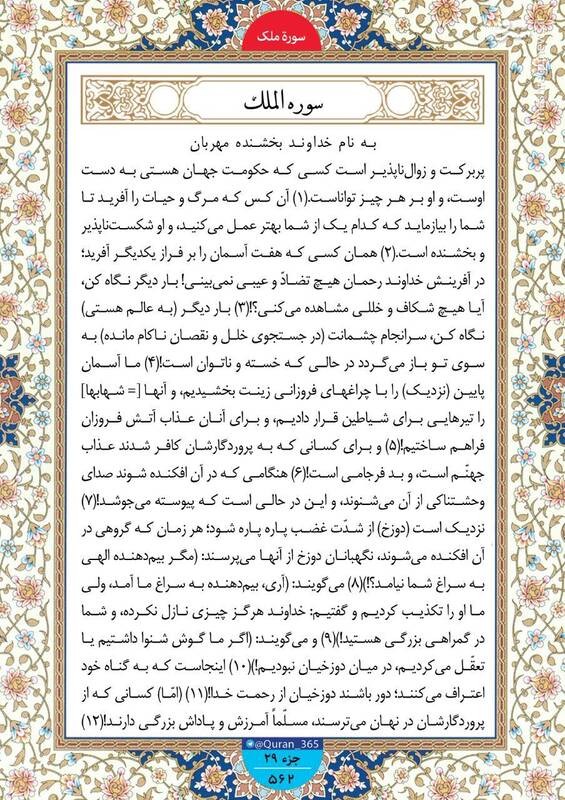 سورة ملک
سوره الملك
به نام خداوند بخشنده مهربان
پربرکت و زوال‌ناپذیر است کسی که حکومت جهان هستی به دست
اوست، و او بر هر چیز تواناست.(۱) آن کس که مرگ و حیات را آفرید تا
شما را بیازماید که کدام یک از شما بهتر عمل می‌کنید، و او شکست‌ناپذیر
و بخشنده است.(۲) همان کسی که هفت آسمان را بر فراز یکدیگر آفرید؛
در آفرینش خداوند رحمان هیچ تضادّ و عیبی نمی‌بینی! بار دیگر نگاه کن،
آیا هیچ شکاف و خللی مشاهده می‌کنی؟!(۳) بار دیگر (به عالم هستی)
نگاه کن، سرانجام چشمانت (در جستجوی خلل و نقصان ناکام مانده) به
سوی تو باز می‌گردد در حالی که خسته و ناتوان است!(۴) ما آسمان
پایین (نزدیک) را با چراغهای فروزانی زینت بخشیدیم، و آنها [= شهابها]
را تیرهایی برای شیاطین قرار دادیم، و برای آنان عذاب آتش فروزان
فراهم ساختیم!(۵) و برای کسانی که به پروردگارشان کافر شدند عذاب
جهنّم است، و بد فرجامی است!(۶) هنگامی که در آن افکنده شوند صدای
وحشتناکی از آن می‌شنوند، و این در حالی است که پیوسته می‌جوشد!(۷)
نزدیک است (دوزخ) از شدّت غضب پاره پاره شود؛ هر زمان که گروهی در
آن افکنده می‌شوند، نگهبانان دوزخ از آنها می‌پرسند: (مگر بیم‌دهنده الهی
به سراغ شما نیامد؟!)(۸) می‌گویند: (آری، بیم‌دهنده به سراغ ما آمد، ولی
ما او را تکذیب کردیم و گفتیم: خداوند هرگز چیزی نازل نکرده، و شما
در گمراهی بزرگی هستید!)(۹) و می‌گویند: (اگر ما گوش شنوا داشتیم یا
تعقّل می‌کردیم، در میان دوزخیان نبودیم!)(۱۰) اینجاست که به گناه خود
اعتراف می‌کنند؛ دور باشند دوزخیان از رحمت خدا!(۱۱) (امّا) کسانی که از
پروردگارشان در نهان می‌ترسند، مسلّماً آمرزش و پاداش بزرگی دارند!(۱۲)
@Quran_365
جزء ۲۹
۵۶۲